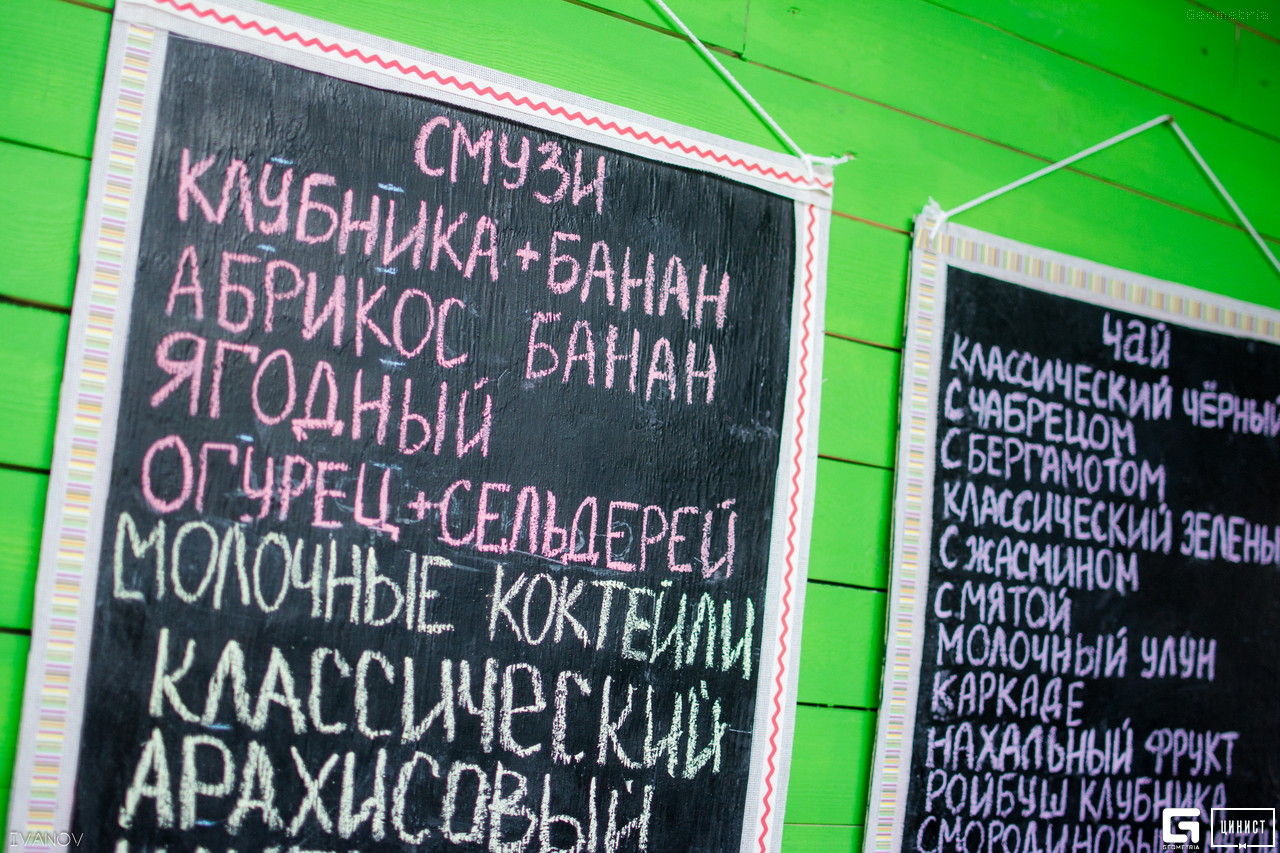 Geometria
СМУЗИ
КЛУБНИКА + БАНАН
АБРИКОС БАНАН
ЯГОДНЫЙ
ОГУРЕЦ + СЕЛЬДЕРЕЙ
МОЛОЧНЫЕ КОКТЕЙЛИ
КЛАССИЧЕСКИЙ
АРАХИСОВЫЙ
ЧАЙ
КЛАССИЧЕСКИЙ ЧЁРНЫЙ
С ЧАБРЕЦОМ
С БЕРГАМОТОМ
КЛАССИЧЕСКИЙ ЗЕЛЕНЫ
С ЖАСМИНОМ
С МЯТОЙ
МОЛОЧНЫЙ УЛУН
КАРКАДЕ
НАХАЛЬНЫЙ ФРУКТ
РОЙБУШ КЛУБНИКА
СМОРОДИНОВЫ
IVANOV
GEOMETRIA
ЦИНИСТ